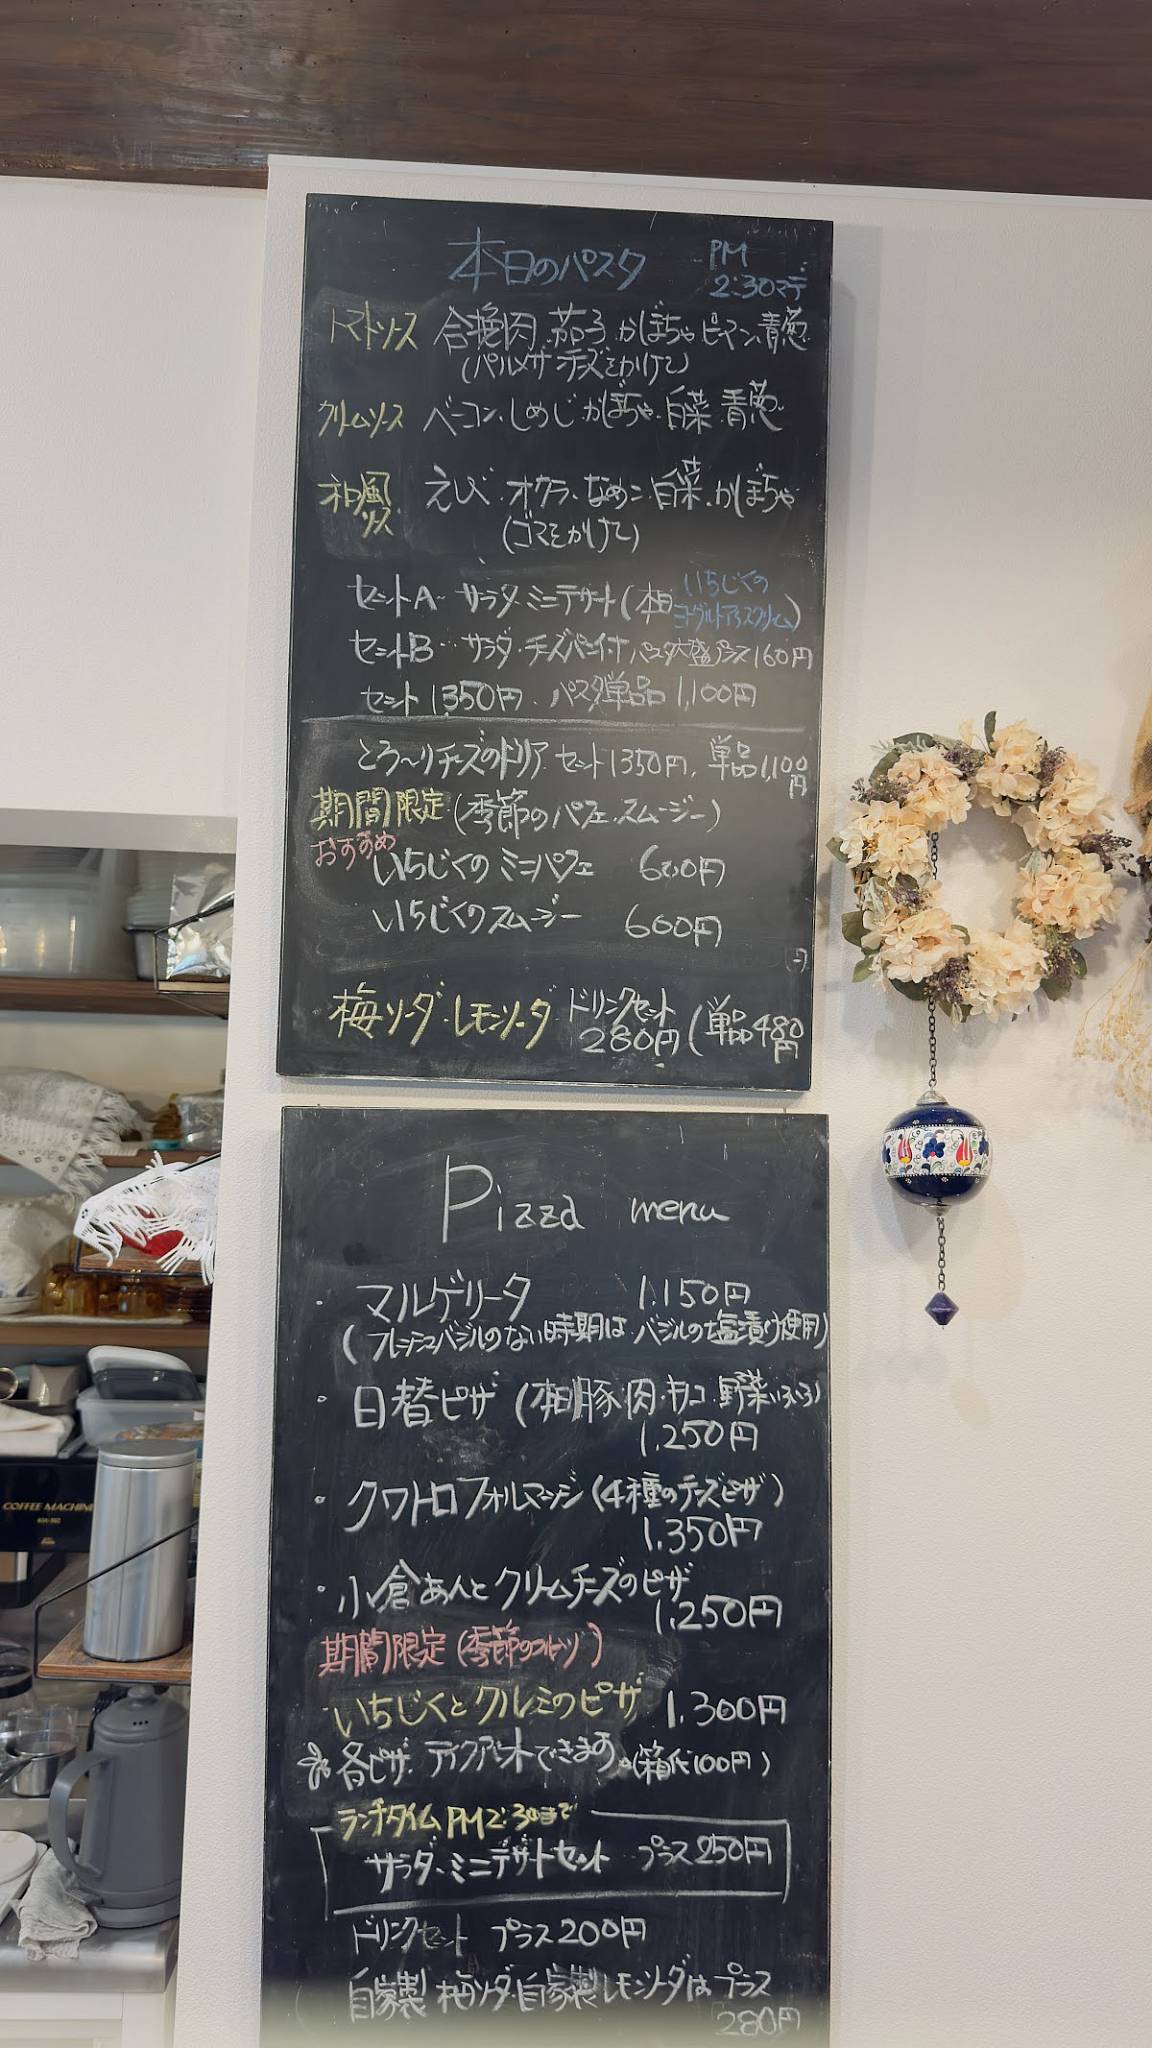 本日のパスタ PM 2:30マデ
トマトソース 合挽肉.茄子.かぼちゃ.ピーマン.青葱
(パルメザンチーズをかけて)
クリームソース ベーコン.しめじ.かぼちゃ.白菜.青葱
和風ソース えび.オクラ.なめこ.白菜.かぼちゃ
(ゴマをかけて)
セットA…サラダ.ミニデザート(本日 いちじくのヨーグルトアイスクリーム)
セットB…サラダ.チーズパン1付 パスタ大盛プラス160円
セット1,350円.パスタ単品1,100円
とろ〜りチーズのドリア セット1350円.単品1,100円
期間限定(季節のパフェ.スムージー)
おすすめ
いちじくのミニパフェ 600円
いちじくのスムージー 600円
円
梅ソーダ.レモンソーダ ドリンクセット280円(単品480円
Pizza menu
・マルゲリータ 1.150円
(フレッシュバジルのない時期は.バジルの塩漬け使用)
・日替ピザ(本日豚肉.キノコ.野菜いろいろ)
1.250円
・クワトロフォルマッジ(4種のチーズピザ)
1.350円
・小倉あんとクリームチーズのピザ
1.250円
期間限定(季節のフルーツ)
いちじくとクルミのピザ 1.300円
各ピザ.テイクアウトできます。(箱代100円)
ランチタイムPM2:30まで
サラダ.ミニデザートセット プラス250円
ドリンクセット プラス200円
自家製梅ソーダ.自家製レモンソーダはプラス
280円
COFFEE MACHINE